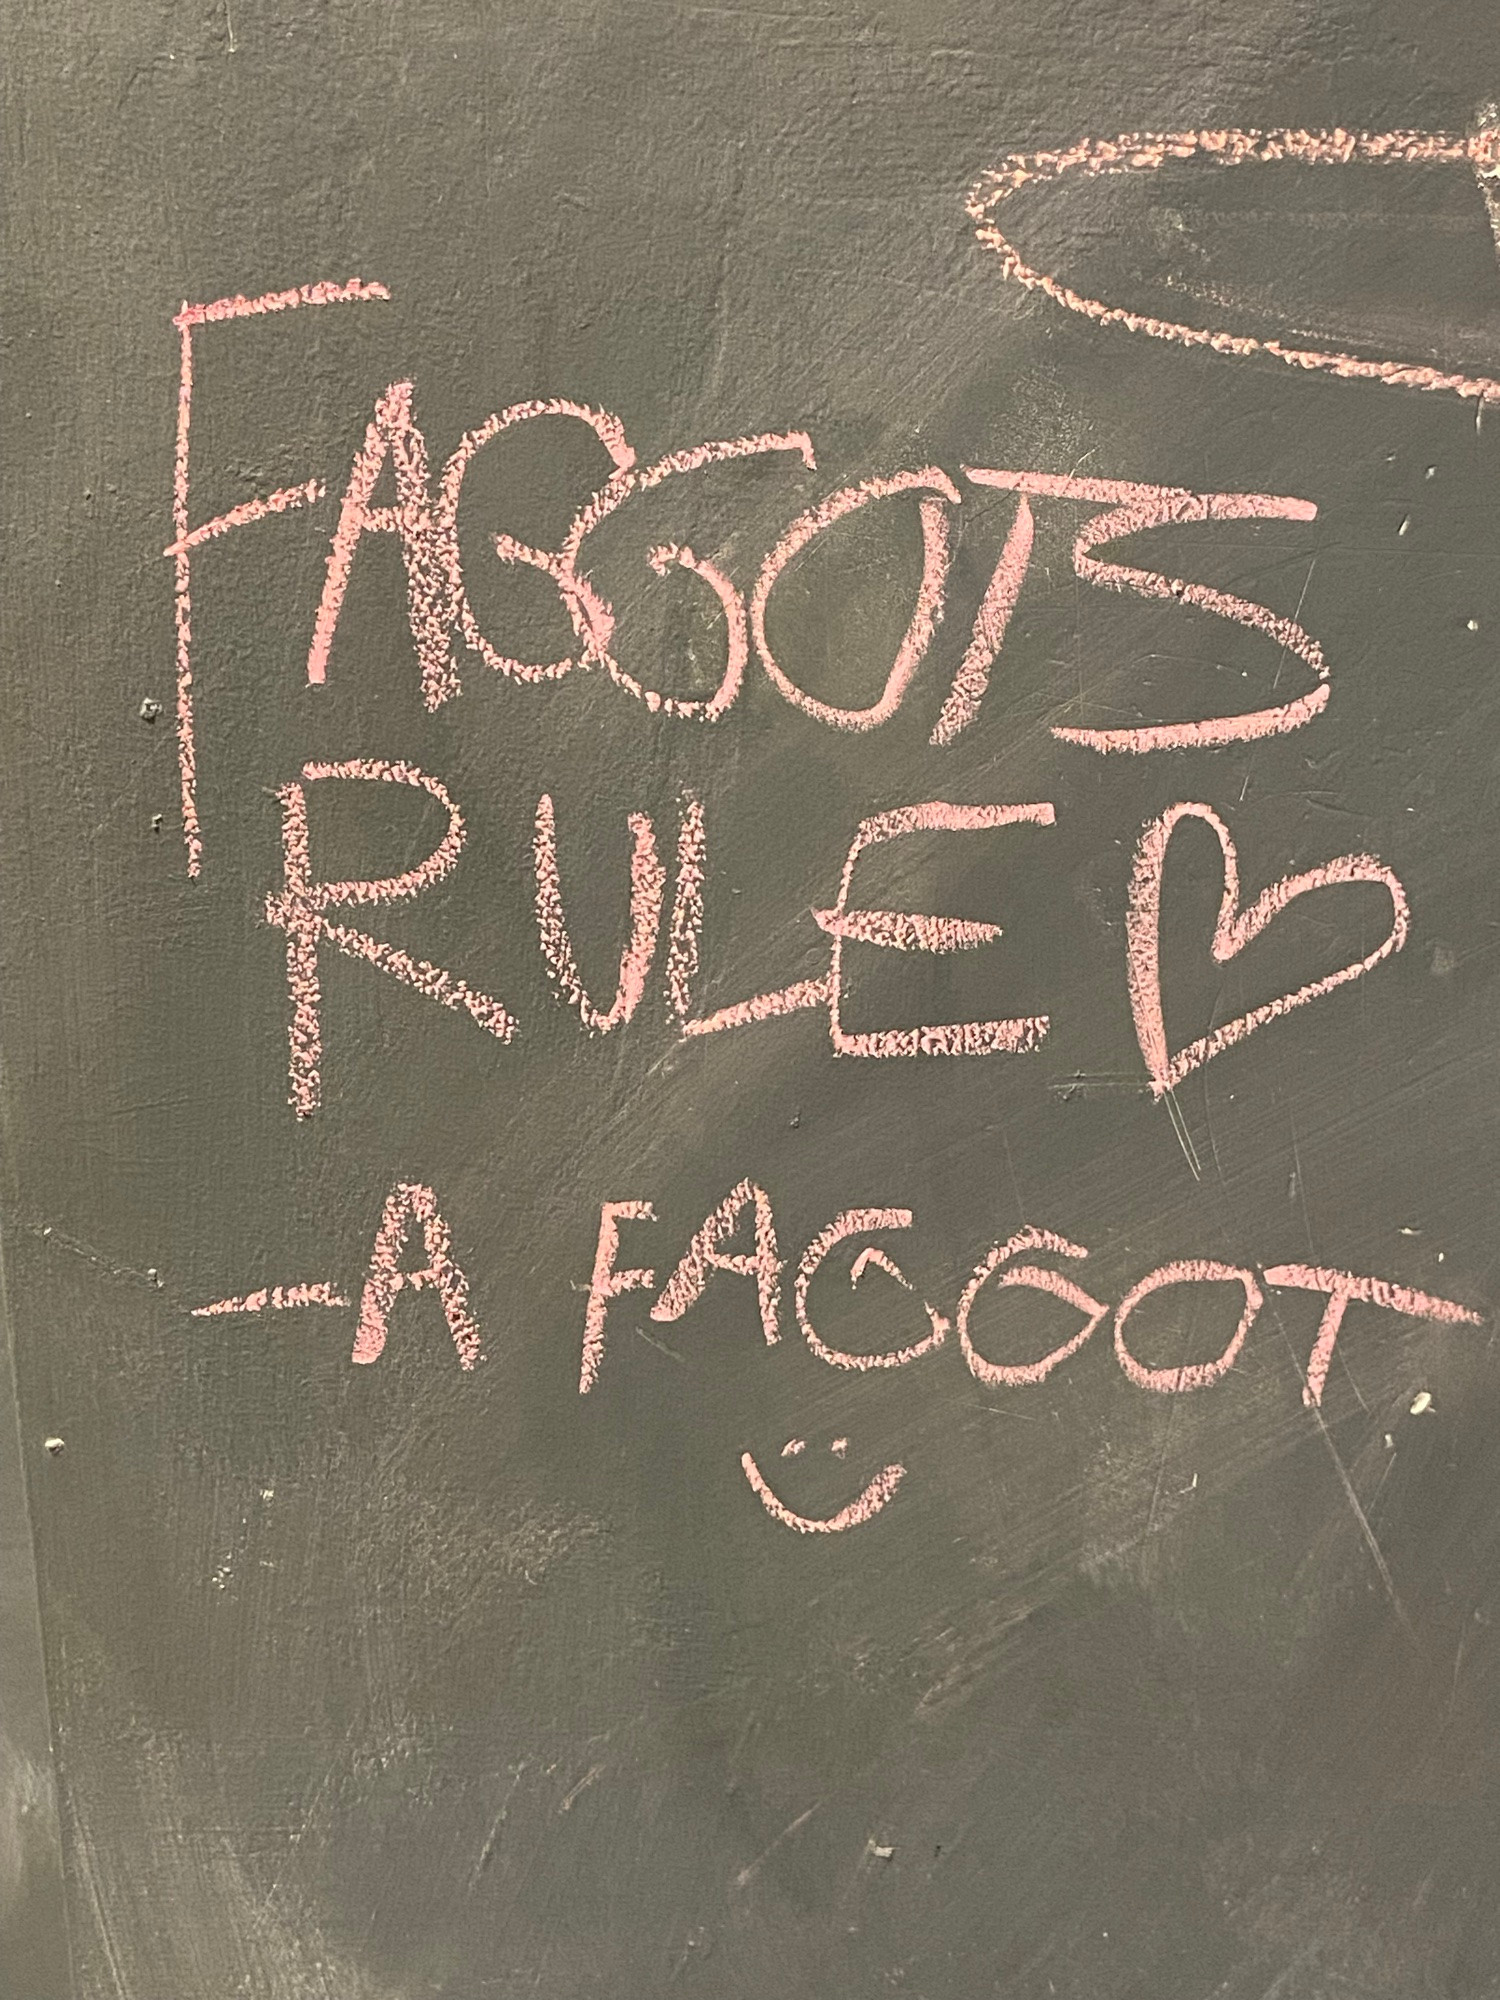 FAGGOTS
RULE ♡
—A FAGGOT